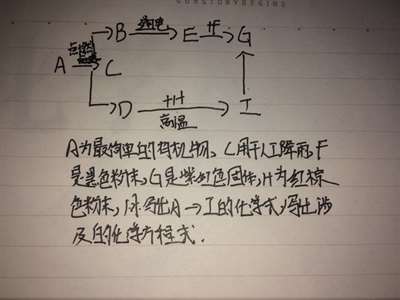 B 通电 E +F G
点燃
A C
D +H 高温 I
A为最简单的有机物、C用于人工降雨,F
是黑色粉末,G是紫红色固体,H为红棕
色粉末,求写出A→I的化学式,写出涉
及的化学方程式.